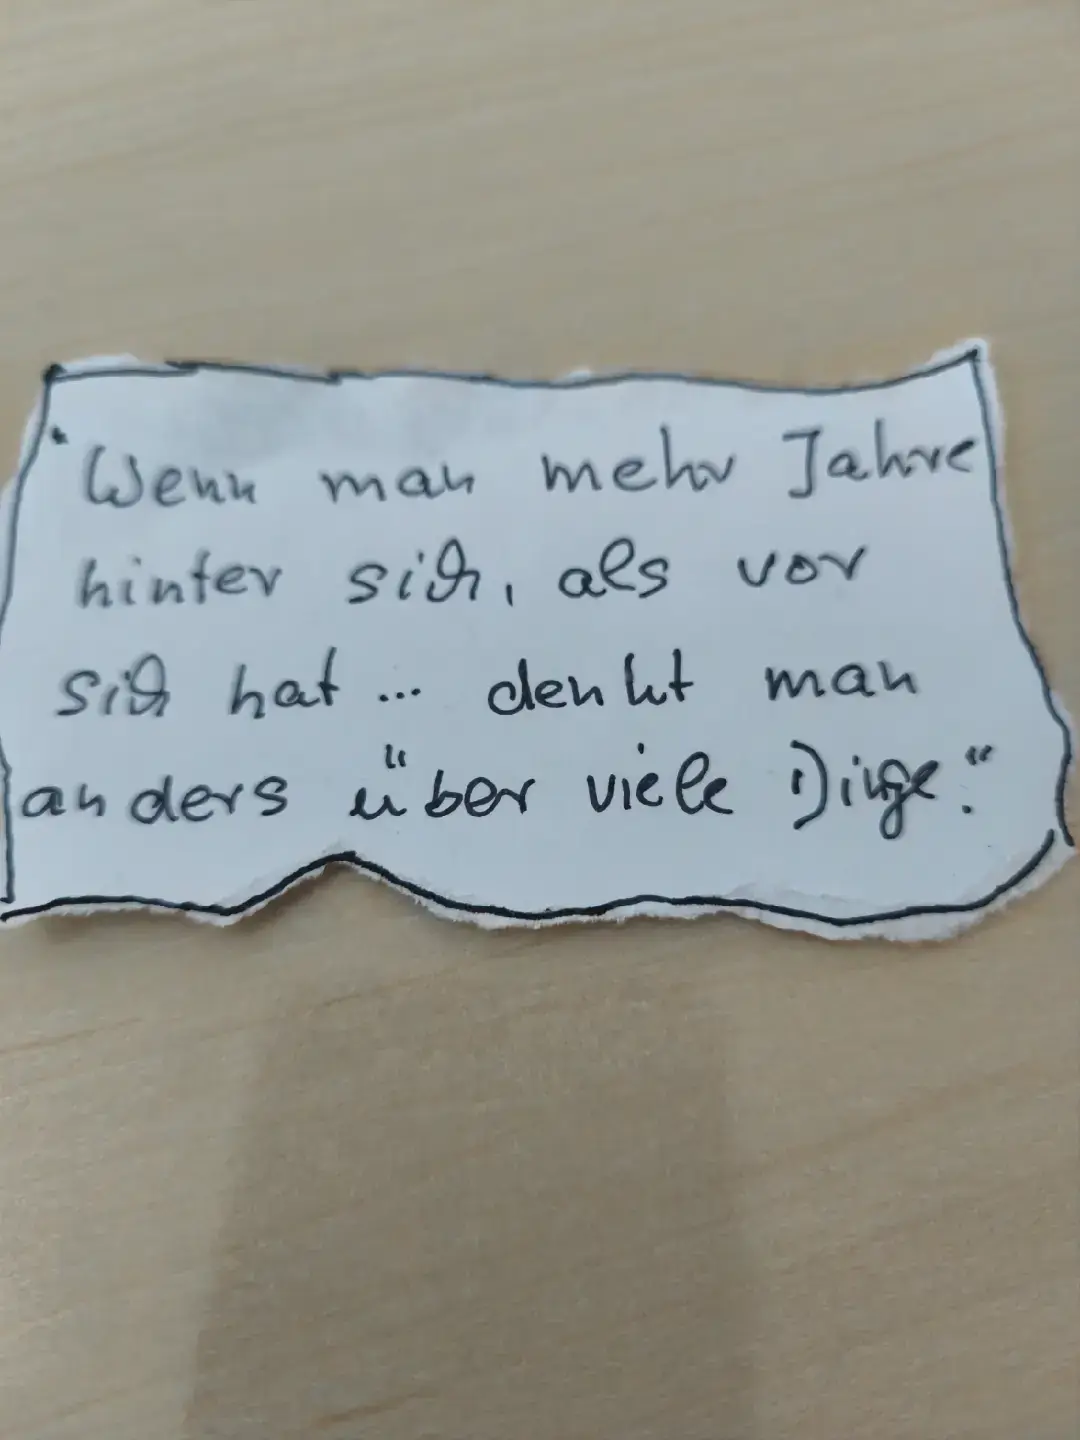 "Wenn man mehr Jahre
hinter sich, als vor
sich hat... denkt man
anders über viele Dinge."